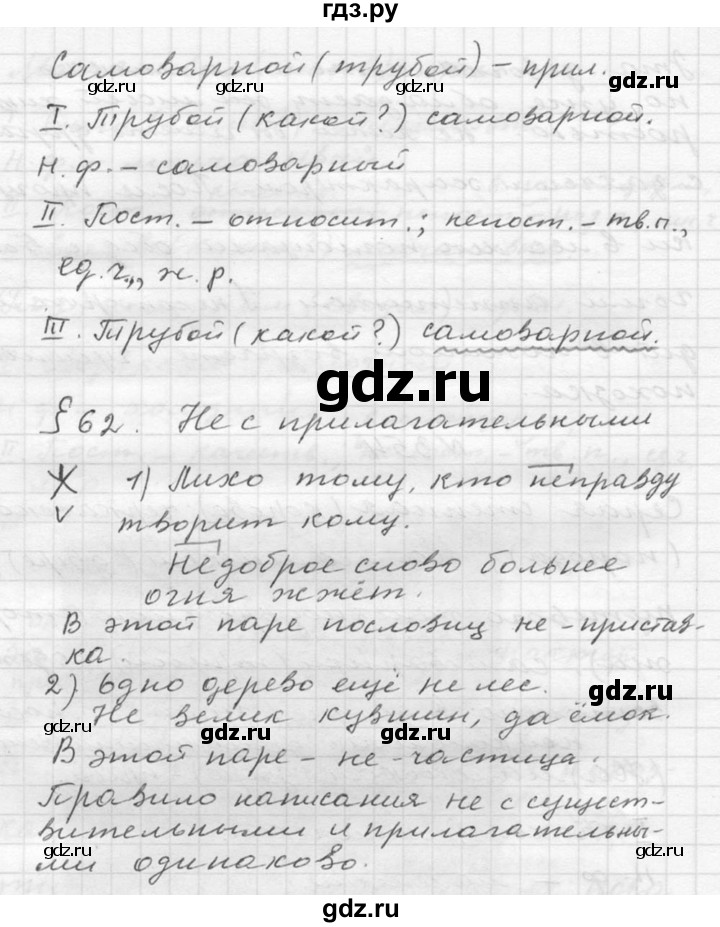 гдз.ру
Самоварной (трубой) – прил.
gdz.ru gdz.ru gdz.ru
I. Трубой (какой?) самоварной.
Н. ф. – самоварный
II. Пост. – относит.; непост. – тв. п.,
gdz.ru gdz.ru
ед. ч., ж. р.
III. Трубой (какой?) самоварной.
gdz.ru
§ 62. Не с прилагательными
1) Лихо тому, кто неправду
творит кому.
gdz.ru gdz.ru
Недоброе слово больнее
огня жжёт.
В этой паре пословиц не – пристав-
ка.
2) Одно дерево ещё не лес.
gdz.ru
Не велик кувшин, да ёмок.
gdz.ru gdz.ru
В этой паре – не – частица.
Правило написания не с сущест-
вительными и прилагательны-
gdz.ru gdz.ru
ми одинаково.
gdz.ru